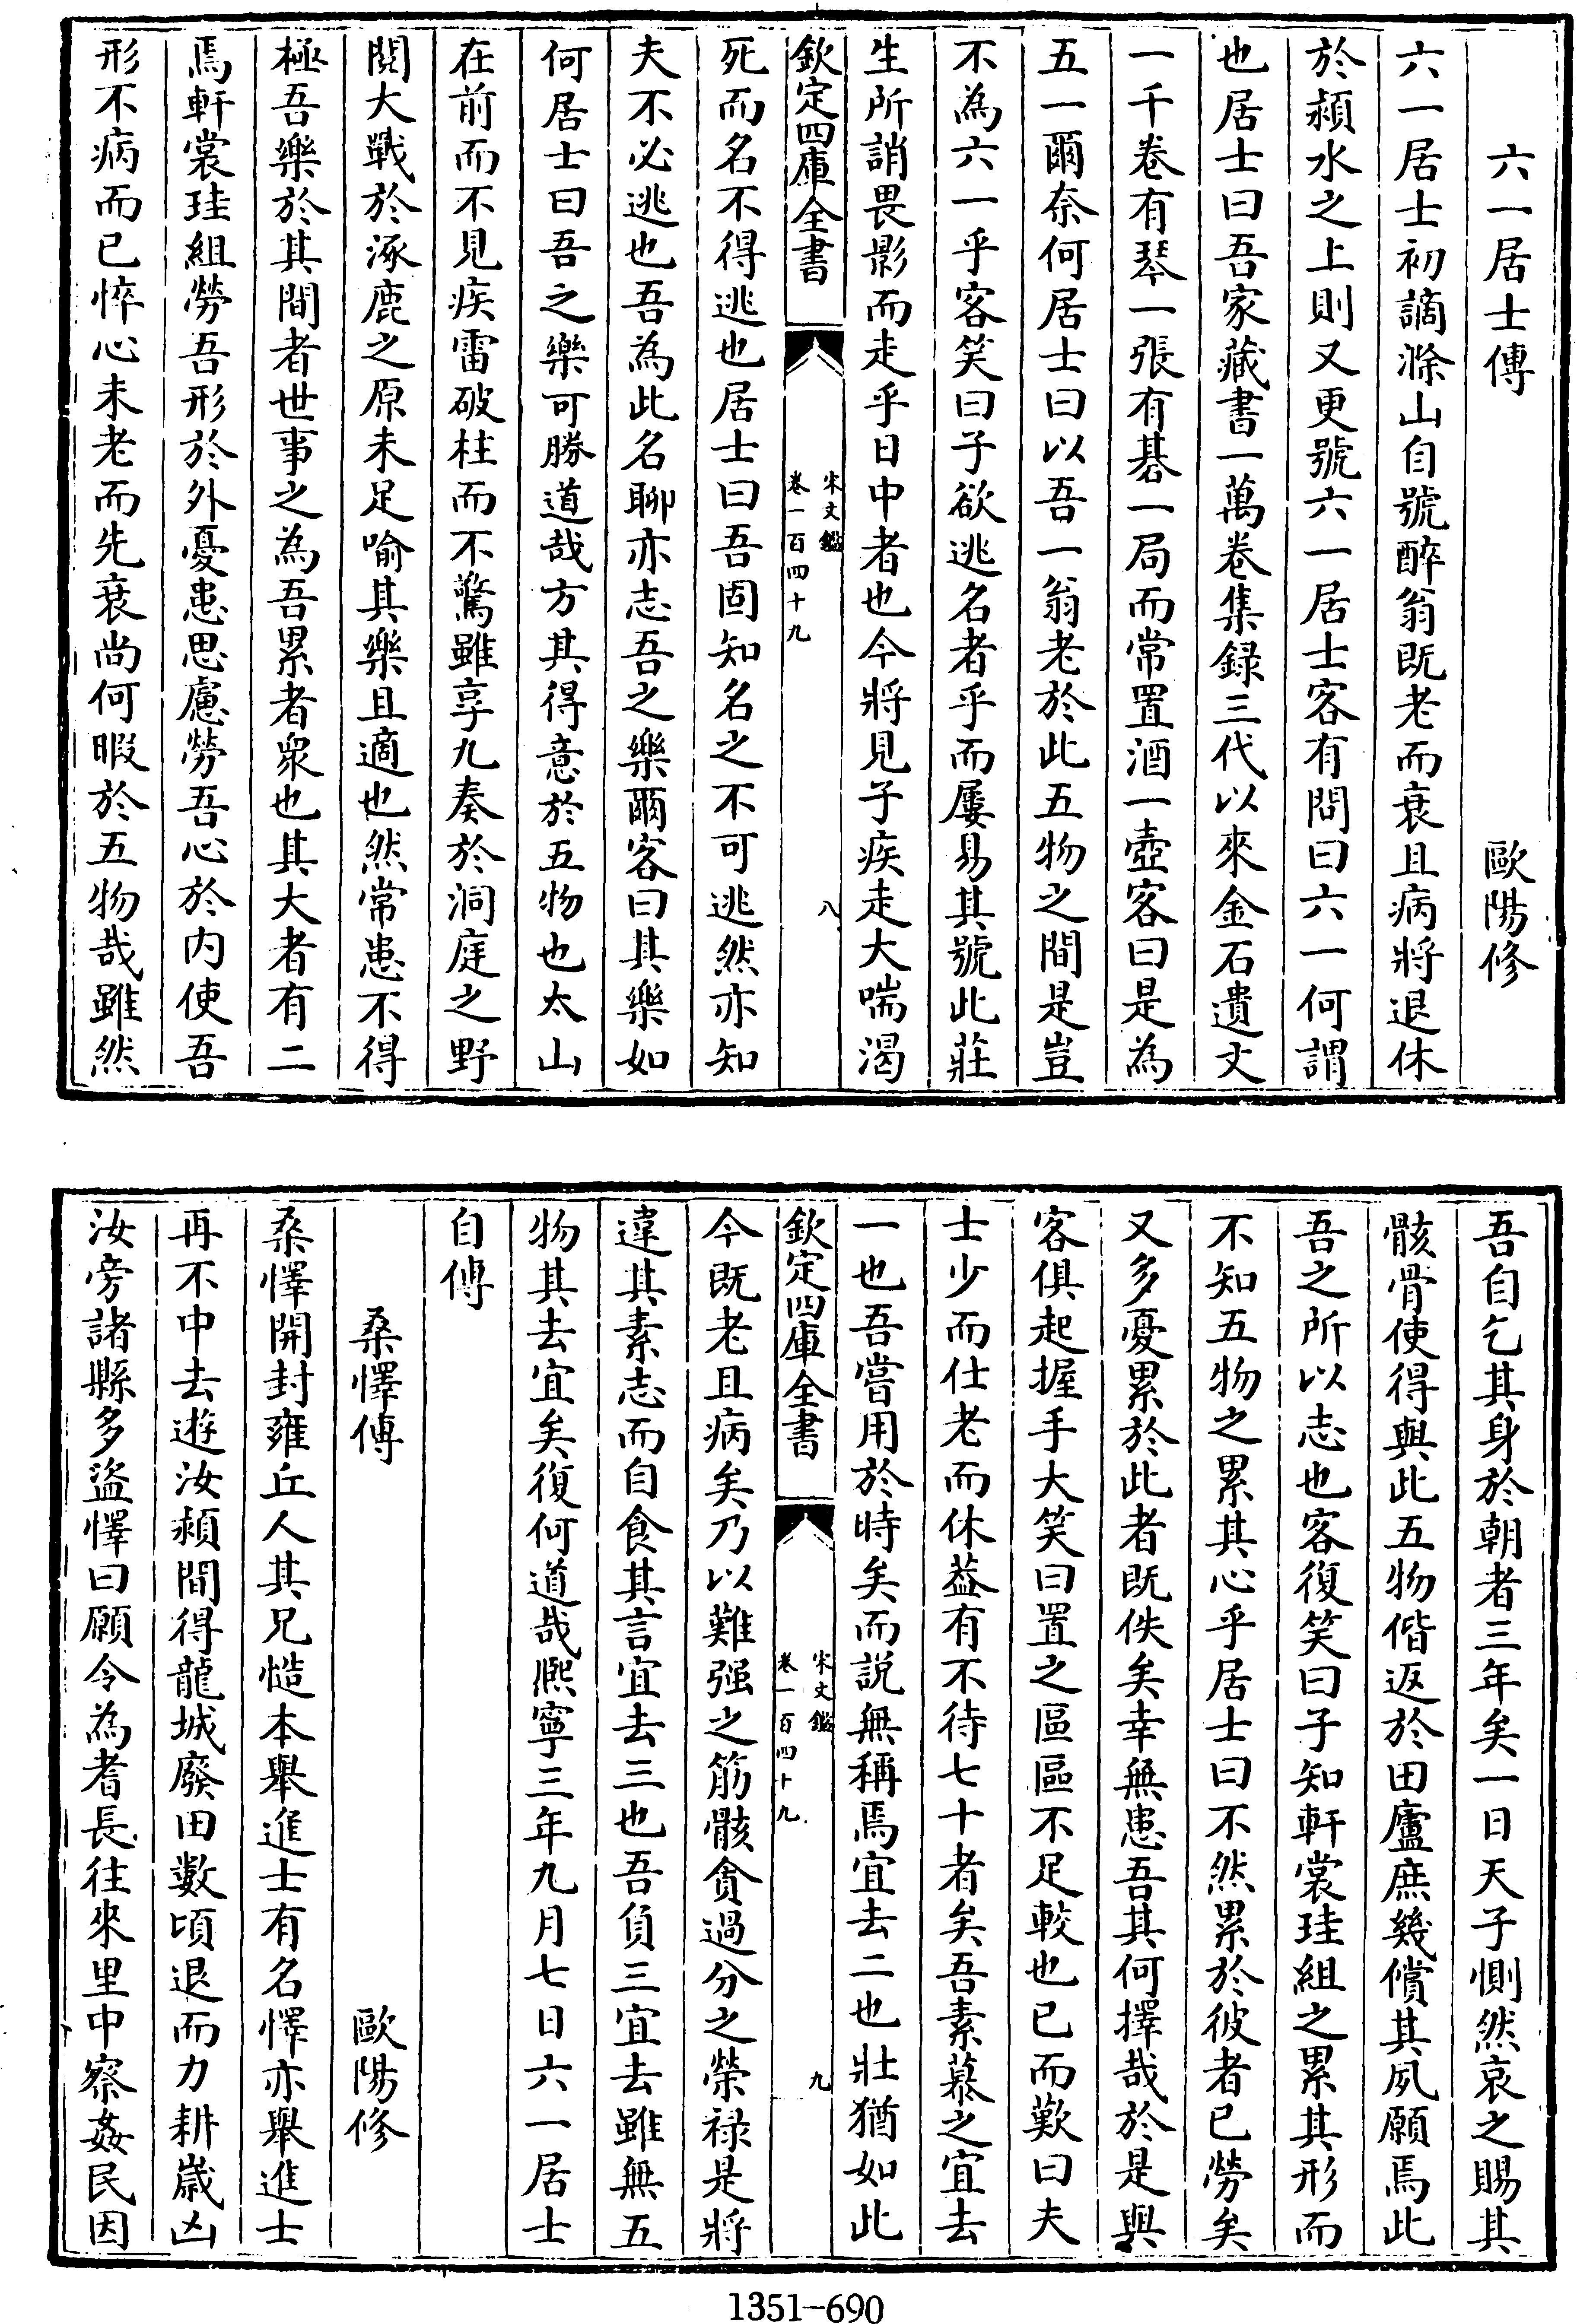 六一居士傳 歐陽修
六一居士初謫滁山自號醉翁既老而衰且病將退休
於潁水之上則又更號六一居士客有問曰六一何謂
也居士曰吾家藏書一萬卷集録三代以來金石遺文
一千卷有琴一張有棊一局而常置酒一壺客曰是為
五一爾奈何居士曰以吾一翁老於此五物之間是豈
不為六一乎客笑曰子欲逃名者乎而屢易其號此莊
生所誚畏影而走乎日中者也今將見子疾走大喘渴
欽定四庫全書 宋文鑑 卷一百四十九 八
死而名不得逃也居士曰吾固知名之不可逃然亦知
夫不必逃也吾為此名聊亦志吾之樂爾客曰其樂如
何居士曰吾之樂可勝道哉方其得意於五物也太山
在前而不見疾雷破柱而不驚雖享九奏於洞庭之野
閱大戰於涿鹿之原未足喻其樂且適也然常患不得
極吾樂於其間者世事之為吾累者衆也其大者有二
焉軒裳珪組勞吾形於外憂患思慮勞吾心於内使吾
形不病而已悴心未老而先衰尚何暇於五物哉雖然
吾自乞其身於朝者三年矣一日天子惻然哀之賜其
骸骨使得與此五物偕返於田廬庶幾償其夙願焉此
吾之所以志也客復笑曰子知軒裳珪組之累其形而
不知五物之累其心乎居士曰不然累於彼者已勞矣
又多憂累於此者既佚矣幸無患吾其何擇哉於是與
客俱起握手大笑曰置之區區不足較也已而歎曰夫
士少而仕老而休葢有不待七十者矣吾素慕之宜去
一也吾嘗用於時矣而説無稱焉宜去二也壯猶如此
欽定四庫全書 宋文鑑 卷一百四十九 九
今既老且病矣乃以難强之筋骸貪過分之榮禄是將
違其素志而自食其言宜去三也吾負三宜去雖無五
物其去宜矣復何道哉熈寧三年九月七日六一居士
自傳
桑懌傳 歐陽修
桑懌開封雍丘人其兄慥本舉進士有名懌亦舉進士
再不中去遊汝潁間得龍城廢田數頃退而力耕嵗凶
汝旁諸縣多盜懌曰願令為耆長往來里中察姦民因
1351-690